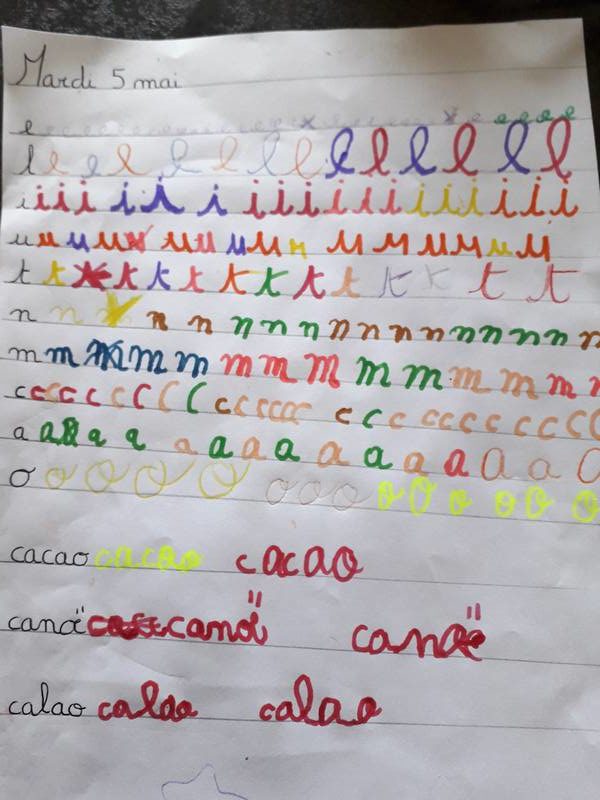 Mardi 5 mai
e e e e e e e e e e e e e e e e
l e e l l l l l l l l l l l
i i i i i i i i i i i i i i i i i i i
u u u u u u u u u u u u u u u
t t t t t t t t t t t t t
n n n n n n n n n n n n n n n n
m m m m m m m m m m m m m
c c c c c c c c c c c c c c c c c c c c c c c c c
a a a a a a a a a a a a a a a
o o o o o o o o o o o o o o
cacao cacao cacao
canoë canoë canoë
calao calao calao